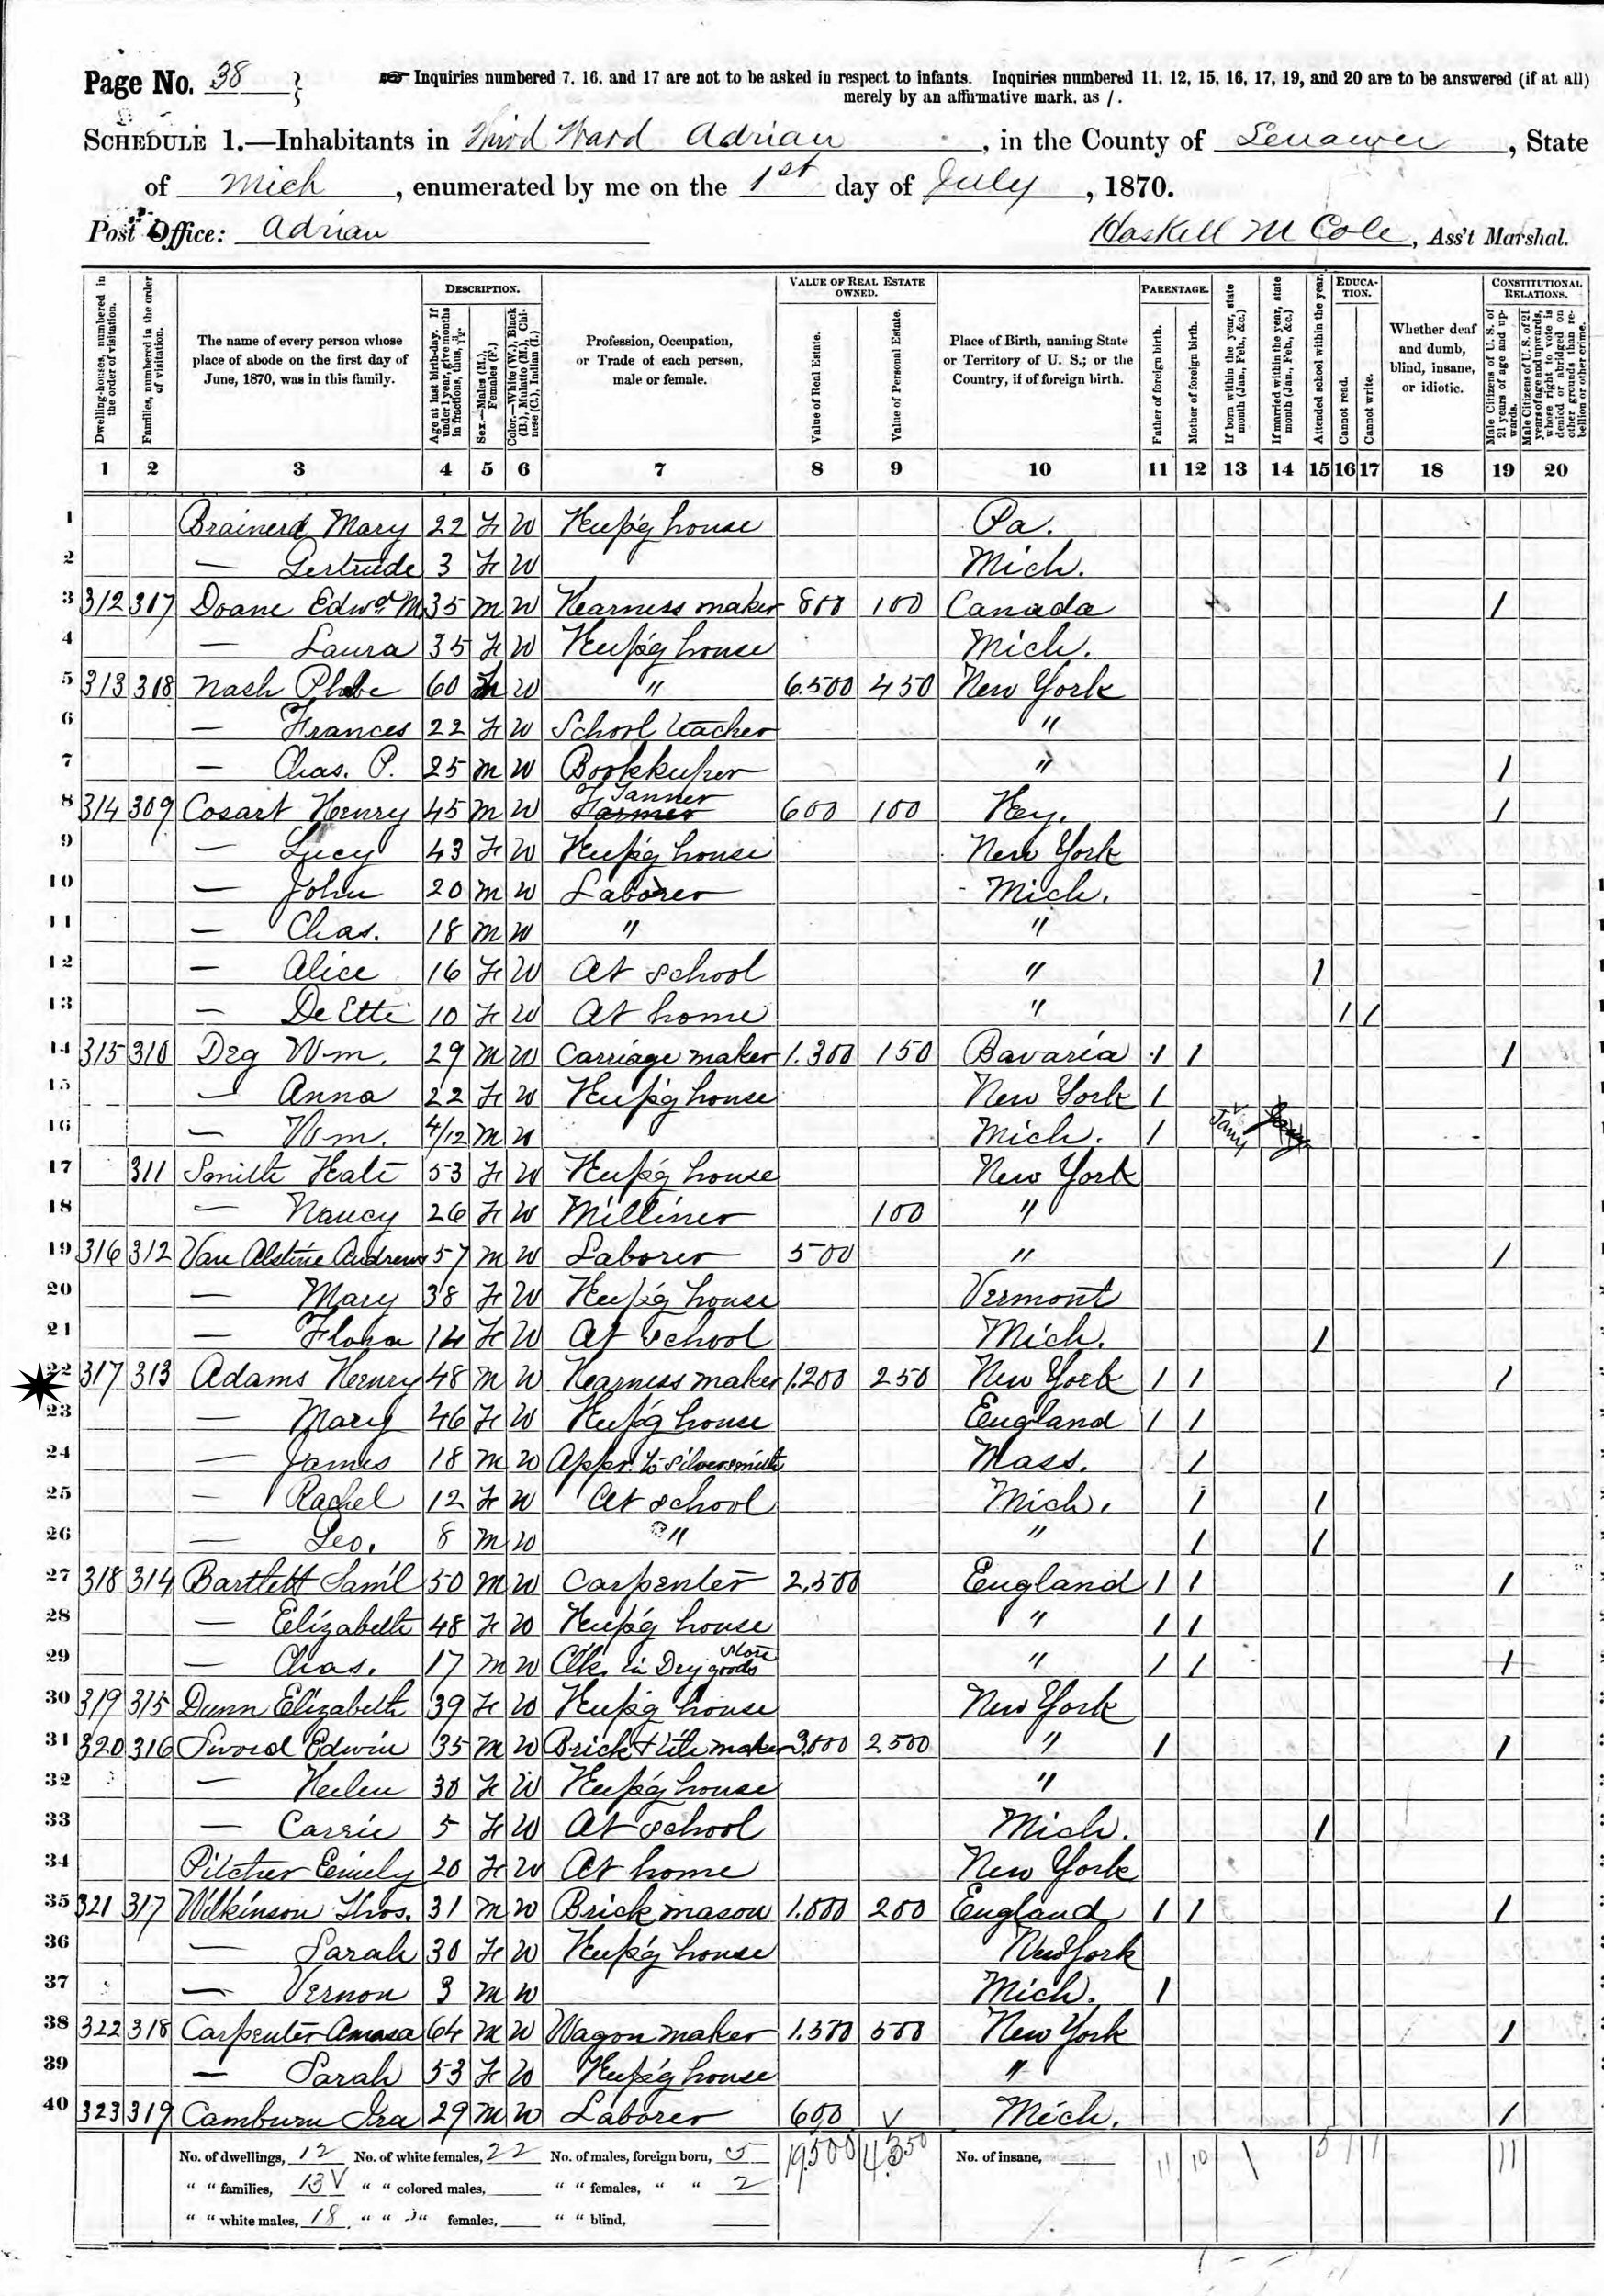 Page No. 38
Inquiries numbered 7, 16, and 17 are not to be asked in respect to infants. Inquiries numbered 11, 12, 15, 16, 17, 19, and 20 are to be answered (if at all)
merely by an affirmative mark, as /.
SCHEDULE 1.—Inhabitants in Third Ward Adrian, in the County of Lenawee, State
of Mich, enumerated by me on the 1st day of July, 1870.
Post Office: Adrian
Haskell M Cole, Ass't Marshal.
Dwelling-houses, numbered in the order of visitation.
Families, numbered in the order of visitation.
The name of every person whose place of abode on the first day of June, 1870, was in this family.
DESCRIPTION.
Age at last birth-day. If under 1 year, give months in fractions, thus, 3/12
Sex.—Males (M.), Females (F.)
Color.—White (W.), Black (B.), Mulatto (M.), Chinese (C.), Indian (I.)
Profession, Occupation, or Trade of each person, male or female.
VALUE OF REAL ESTATE OWNED.
Value of Real Estate.
Value of Personal Estate.
Place of Birth, naming State or Territory of U. S.; or the Country, if of foreign birth.
PARENTAGE.
Father of foreign birth.
Mother of foreign birth.
If born within the year, state month (Jan., Feb., &c.)
If married within the year, state month (Jan., Feb., &c.)
Attended school within the year.
EDUCATION.
Cannot read.
Cannot write.
Whether deaf and dumb, blind, insane, or idiotic.
CONSTITUTIONAL RELATIONS.
Male Citizens of U. S. of 21 years of age and upwards.
Male Citizens of U. S. of 21 years of age and upwards, whose right to vote is denied or abridged on other grounds than rebellion or other crime.
1 2 3 4 5 6 7 8 9 10 11 12 13 14 15 16 17 18 19 20
1 Brainerd Mary 22 F W Keep'g house Pa.
2 — Gertrude 3 F W Mich.
3 312 307 Doane Edwd M 35 M W Harness maker 800 100 Canada /
4 — Laura 35 F W Keep'g house Mich.
5 313 308 Nash Phebe 60 F W " 6.500 450 New York
6 — Frances 22 F W School teacher "
7 — Chas. P. 25 M W Bookkeeper " /
8 314 309 Cosart Henry 45 M W Tanner 600 100 Key. /
9 — Lucy 43 F W Keep'g house New York
10 — John 20 M W Laborer Mich.
11 — Chas. 18 M W " "
12 — Alice 16 F W At school " /
13 — DeEtte 10 F W At home " / /
14 315 310 Deg Wm. 29 M W Carriage maker 1.300 150 Bavaria / / /
15 — Anna 22 F W Keep'g house New York /
16 — Wm. 4/12 M W Mich. / Jany
17 311 Smith Kate 53 F W Keep'g house New York
18 — Nancy 26 F W Milliner 100 "
19 316 312 Van Alstine Andrew 57 M W Laborer 500 " /
20 — Mary 38 F W Keep'g house Vermont
21 — Flora 14 F W At school Mich. /
22 317 313 Adams Henry 48 M W Harness maker 1.200 250 New York / / /
23 — Mary 46 F W Keep'g house England / /
24 — James 18 M W Appr. to silversmith Mass. /
25 — Rachel 12 F W At school Mich. / /
26 — Geo. 8 M W " " / /
27 318 314 Bartlett Saml 50 M W Carpenter 2.500 England / / /
28 — Elizabeth 48 F W Keep'g house " / /
29 — Chas. 17 M W Clk. in Dry goods store " / / /
30 319 315 Dunn Elizabeth 39 F W Keep'g house New York
31 320 316 Sword Edwin 35 M W Brick & tile maker 3.000 2500 " / /
32 — Helen 30 F W Keep'g house "
33 — Carrie 5 F W At school Mich. /
34 Pilcher Emily 20 F W At home New York
35 321 317 Wilkinson Thos. 31 M W Brick mason 1.000 200 England / / /
36 — Sarah 30 F W Keep'g house New York
37 — Vernon 3 M W Mich. /
38 322 318 Carpenter Amasa 64 M W Wagon maker 1.500 500 New York /
39 — Sarah 53 F W Keep'g house "
40 323 319 Camburn Ira 29 M W Laborer 600 Mich. /
No. of dwellings, 12 No. of white females, 22 No. of males, foreign born, 5 19,500 4350 No. of insane, 11 10 1 5 1 1 11
" " families, 13 " " colored males, " " females, " " 2
" " white males, 18 " " " females, " " blind,